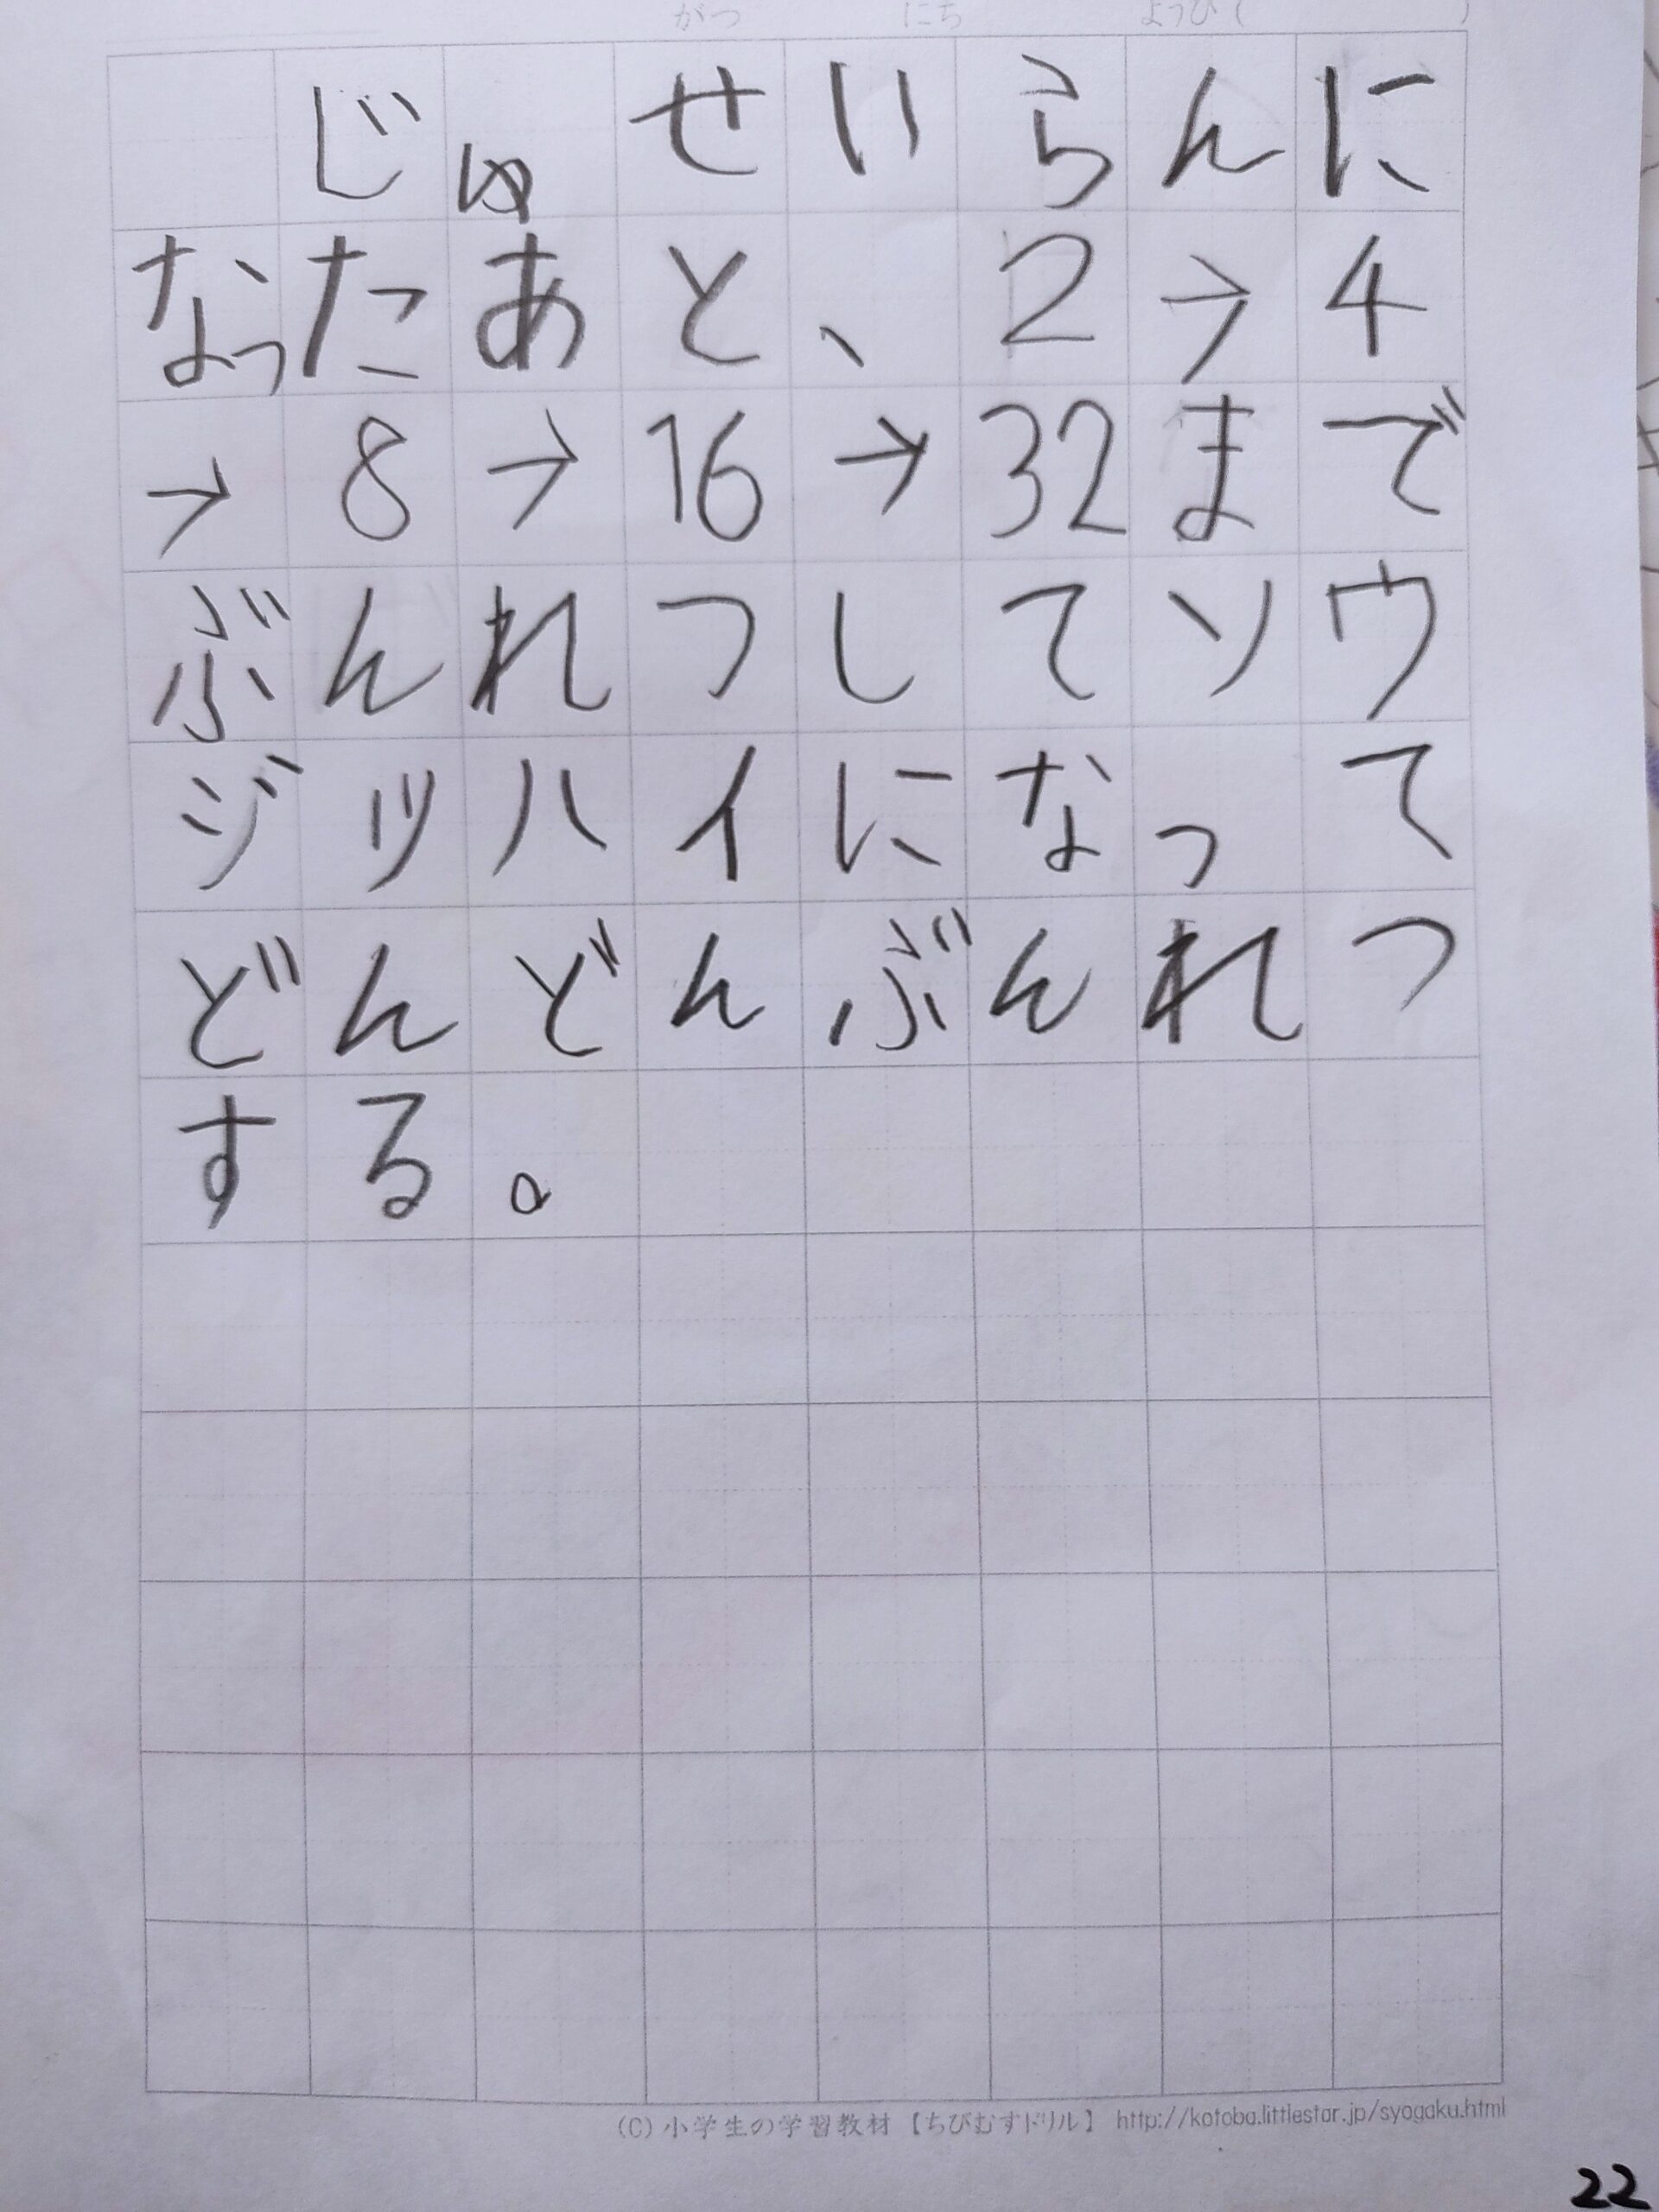 がつ にち ようび( )
じゅせいらんに
なったあと、2→4
→8→16→32まで
ぶんれつしてソウ
ジツハイになって
どんどんぶんれつ
する。
(C) 小学生の学習教材【ちびむすドリル】 http://kotoba.littlestar.jp/syogaku.html
22